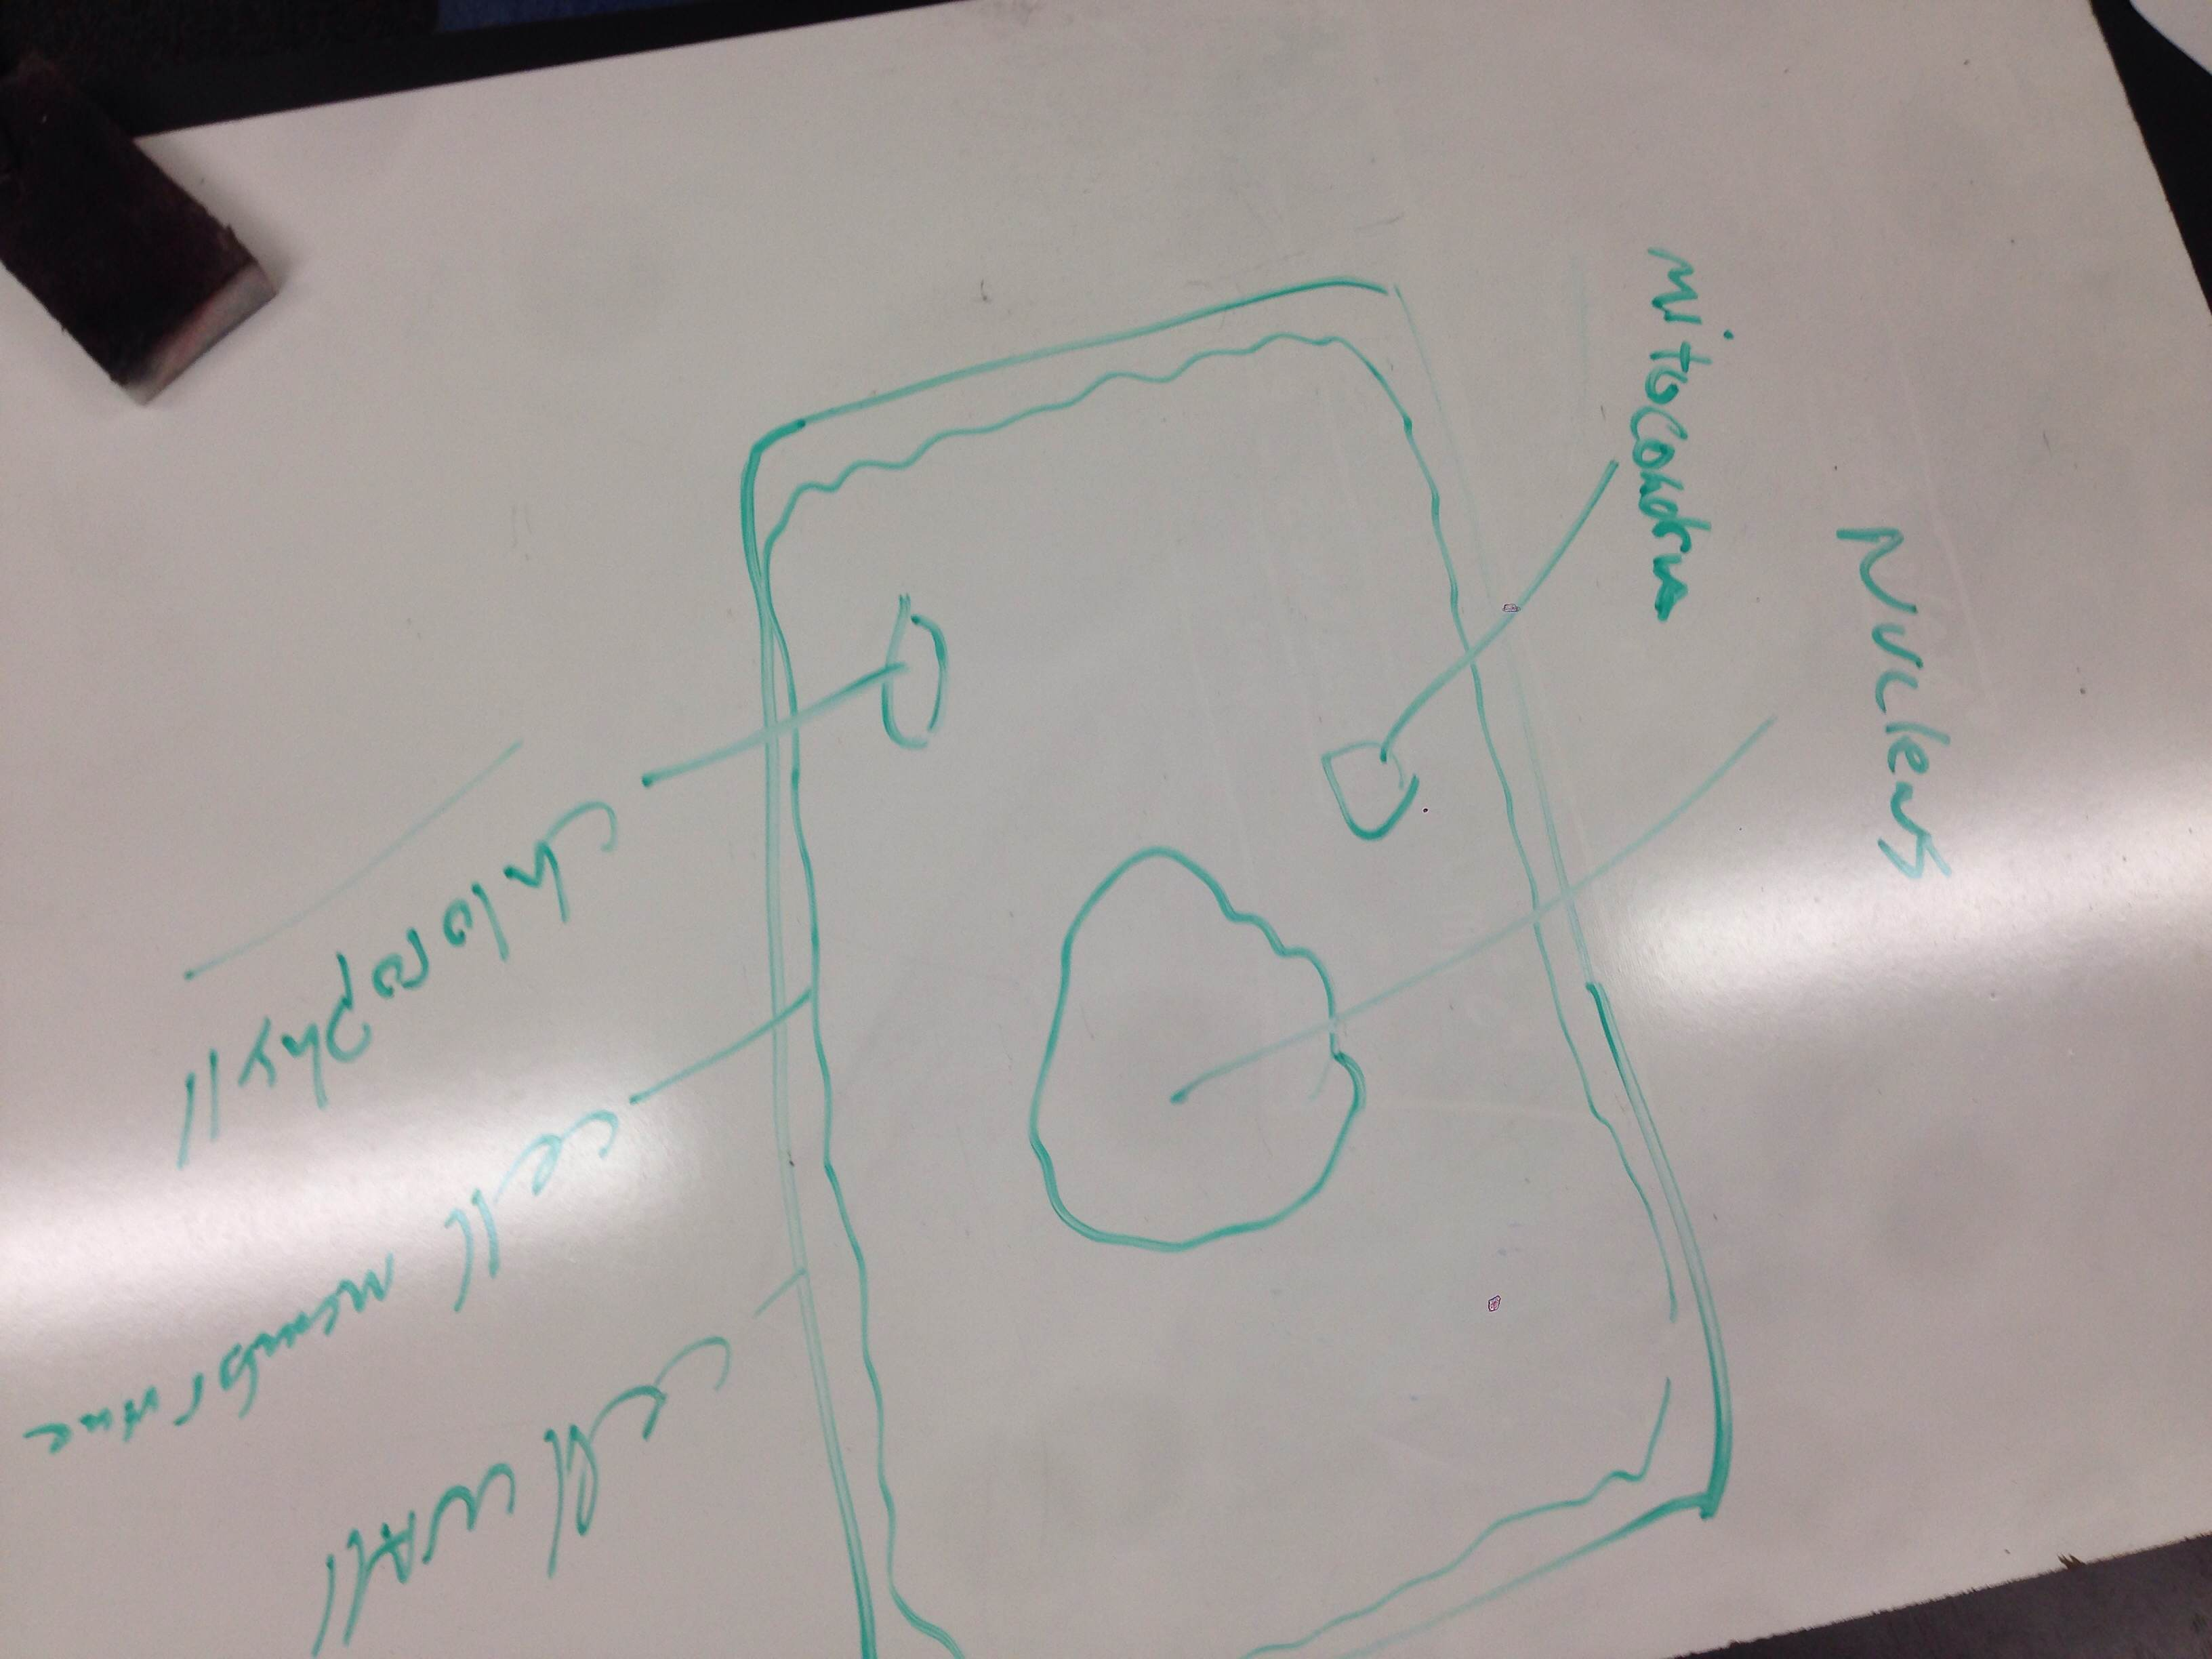 Mitocondria
Nucleus
chlorophyll
cell membrane
cell wall